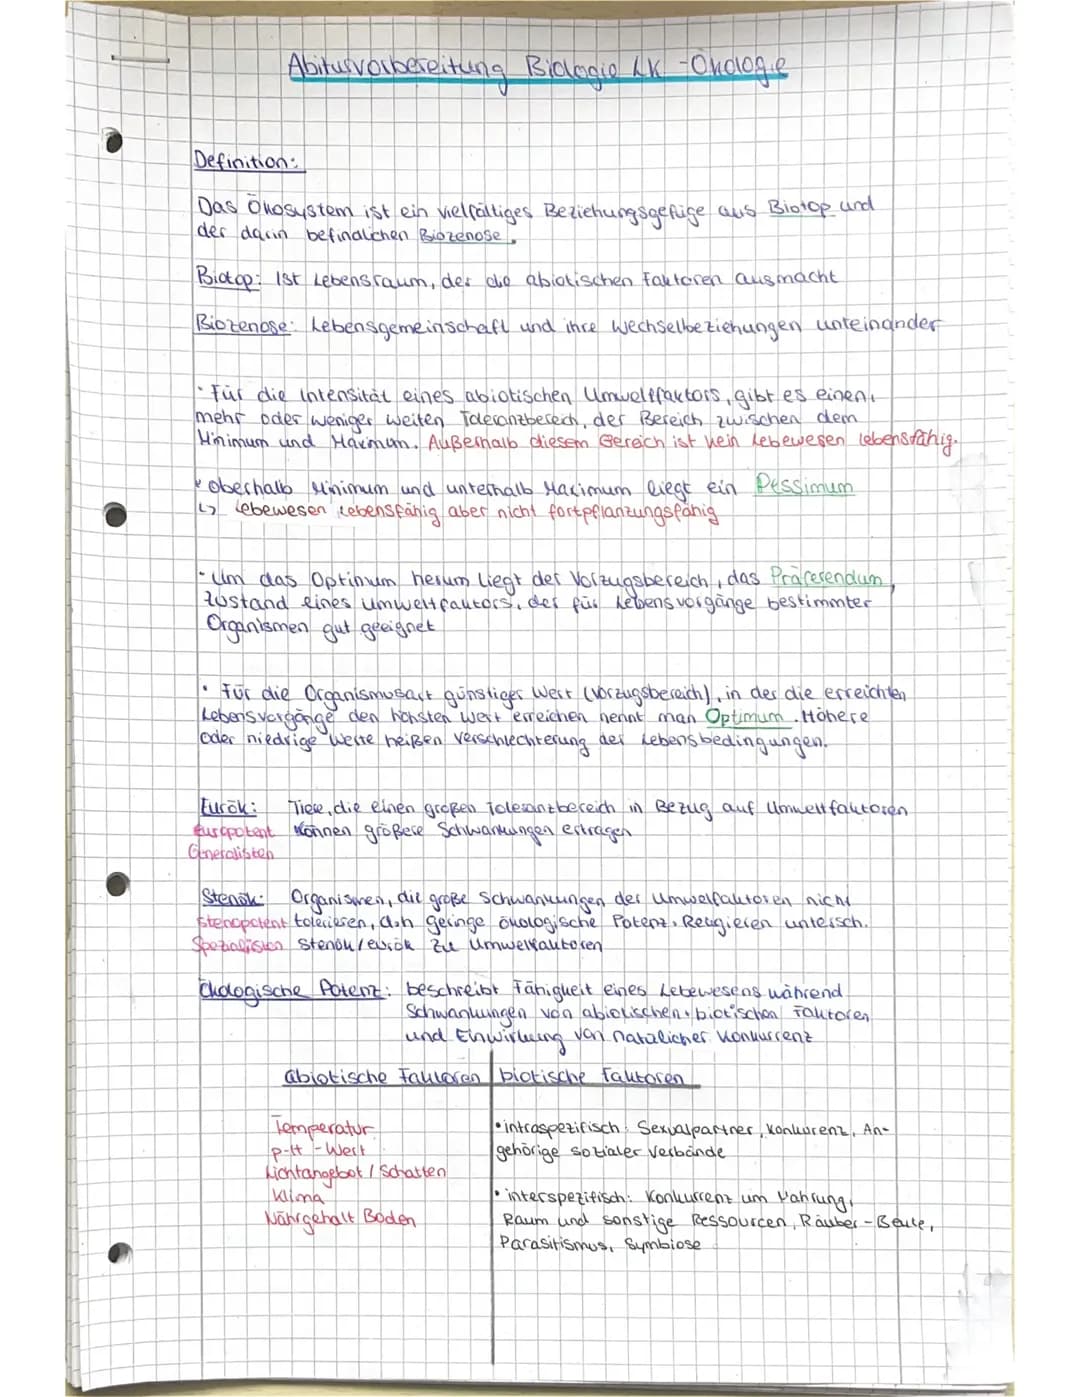 Abiturvorbereitung Biologie LK - Ökologie
Definition:
Das Ökosystem ist ein vielfältiges Beziehungsgefüge aus Biotop und
der darin befindlichen Biozenose.
Biotop: Ist Lebensraum, der die abiotischen Faktoren ausmacht
Biozenose: Lebensgemeinschaft und ihre Wechselbeziehungen unteinander
• Für die Intensität eines abiotischen Umweltfaktors, gibt es einen,
mehr oder weniger weiten Toleranzbereich, der Bereich zwischen dem
Minimum und Maximum. Außerhalb diesem Bereich ist kein Lebewesen lebensfähig.
• oberhalb Minimum und unterhalb Maximum liegt ein Pessimum
↳ Lebewesen lebensfähig aber nicht fortpflanzungsfähig
• Um das Optimum herum liegt der Vorzugsbereich, das Präferendum,
Zustand eines Umweltfaktors, der für Lebensvorgänge bestimmter
Organismen gut geeignet
• Für die Organismusart günstiger Wert (Vorzugsbereich), in der die erreichten
Lebensvorgänge den höchsten Wert erreichen nennt man Optimum. Höhere
oder niedrige Werte heißen Verschlechterung der Lebensbedingungen.
Eurök: Tiere, die einen großen Toleranzbereich in Bezug auf Umweltfaktoren
Eurypotent können größere Schwankungen ertragen
Generalisten
Stenök: Organismen, die große Schwankungen der Umwelfaktoren nicht
stenopotent tolerieren, d.h geringe ökologische Potenz. Reagieren untersch.
Spezialisten stenök/eurök zu Umwelfaktoren
Ökologische Potenz: beschreibt Fähigkeit eines Lebewesens während
Schwankungen von abiotischen + biotischen Faktoren
und Einwirkung von natürlicher Konkurrenz
abiotische Faktoren | biotische Faktoren
Temperatur
p-H - Wert
Lichtangebot / Schatten
Klima
Nährgehalt Boden
• intraspezifisch: Sexualpartner, Konkurenz, An-
gehörige sozialer Verbände
• interspezifisch: Konkurrenz um Nahrung,
Raum und sonstige Ressourcen, Räuber-Beute,
Parasitismus, Symbiose